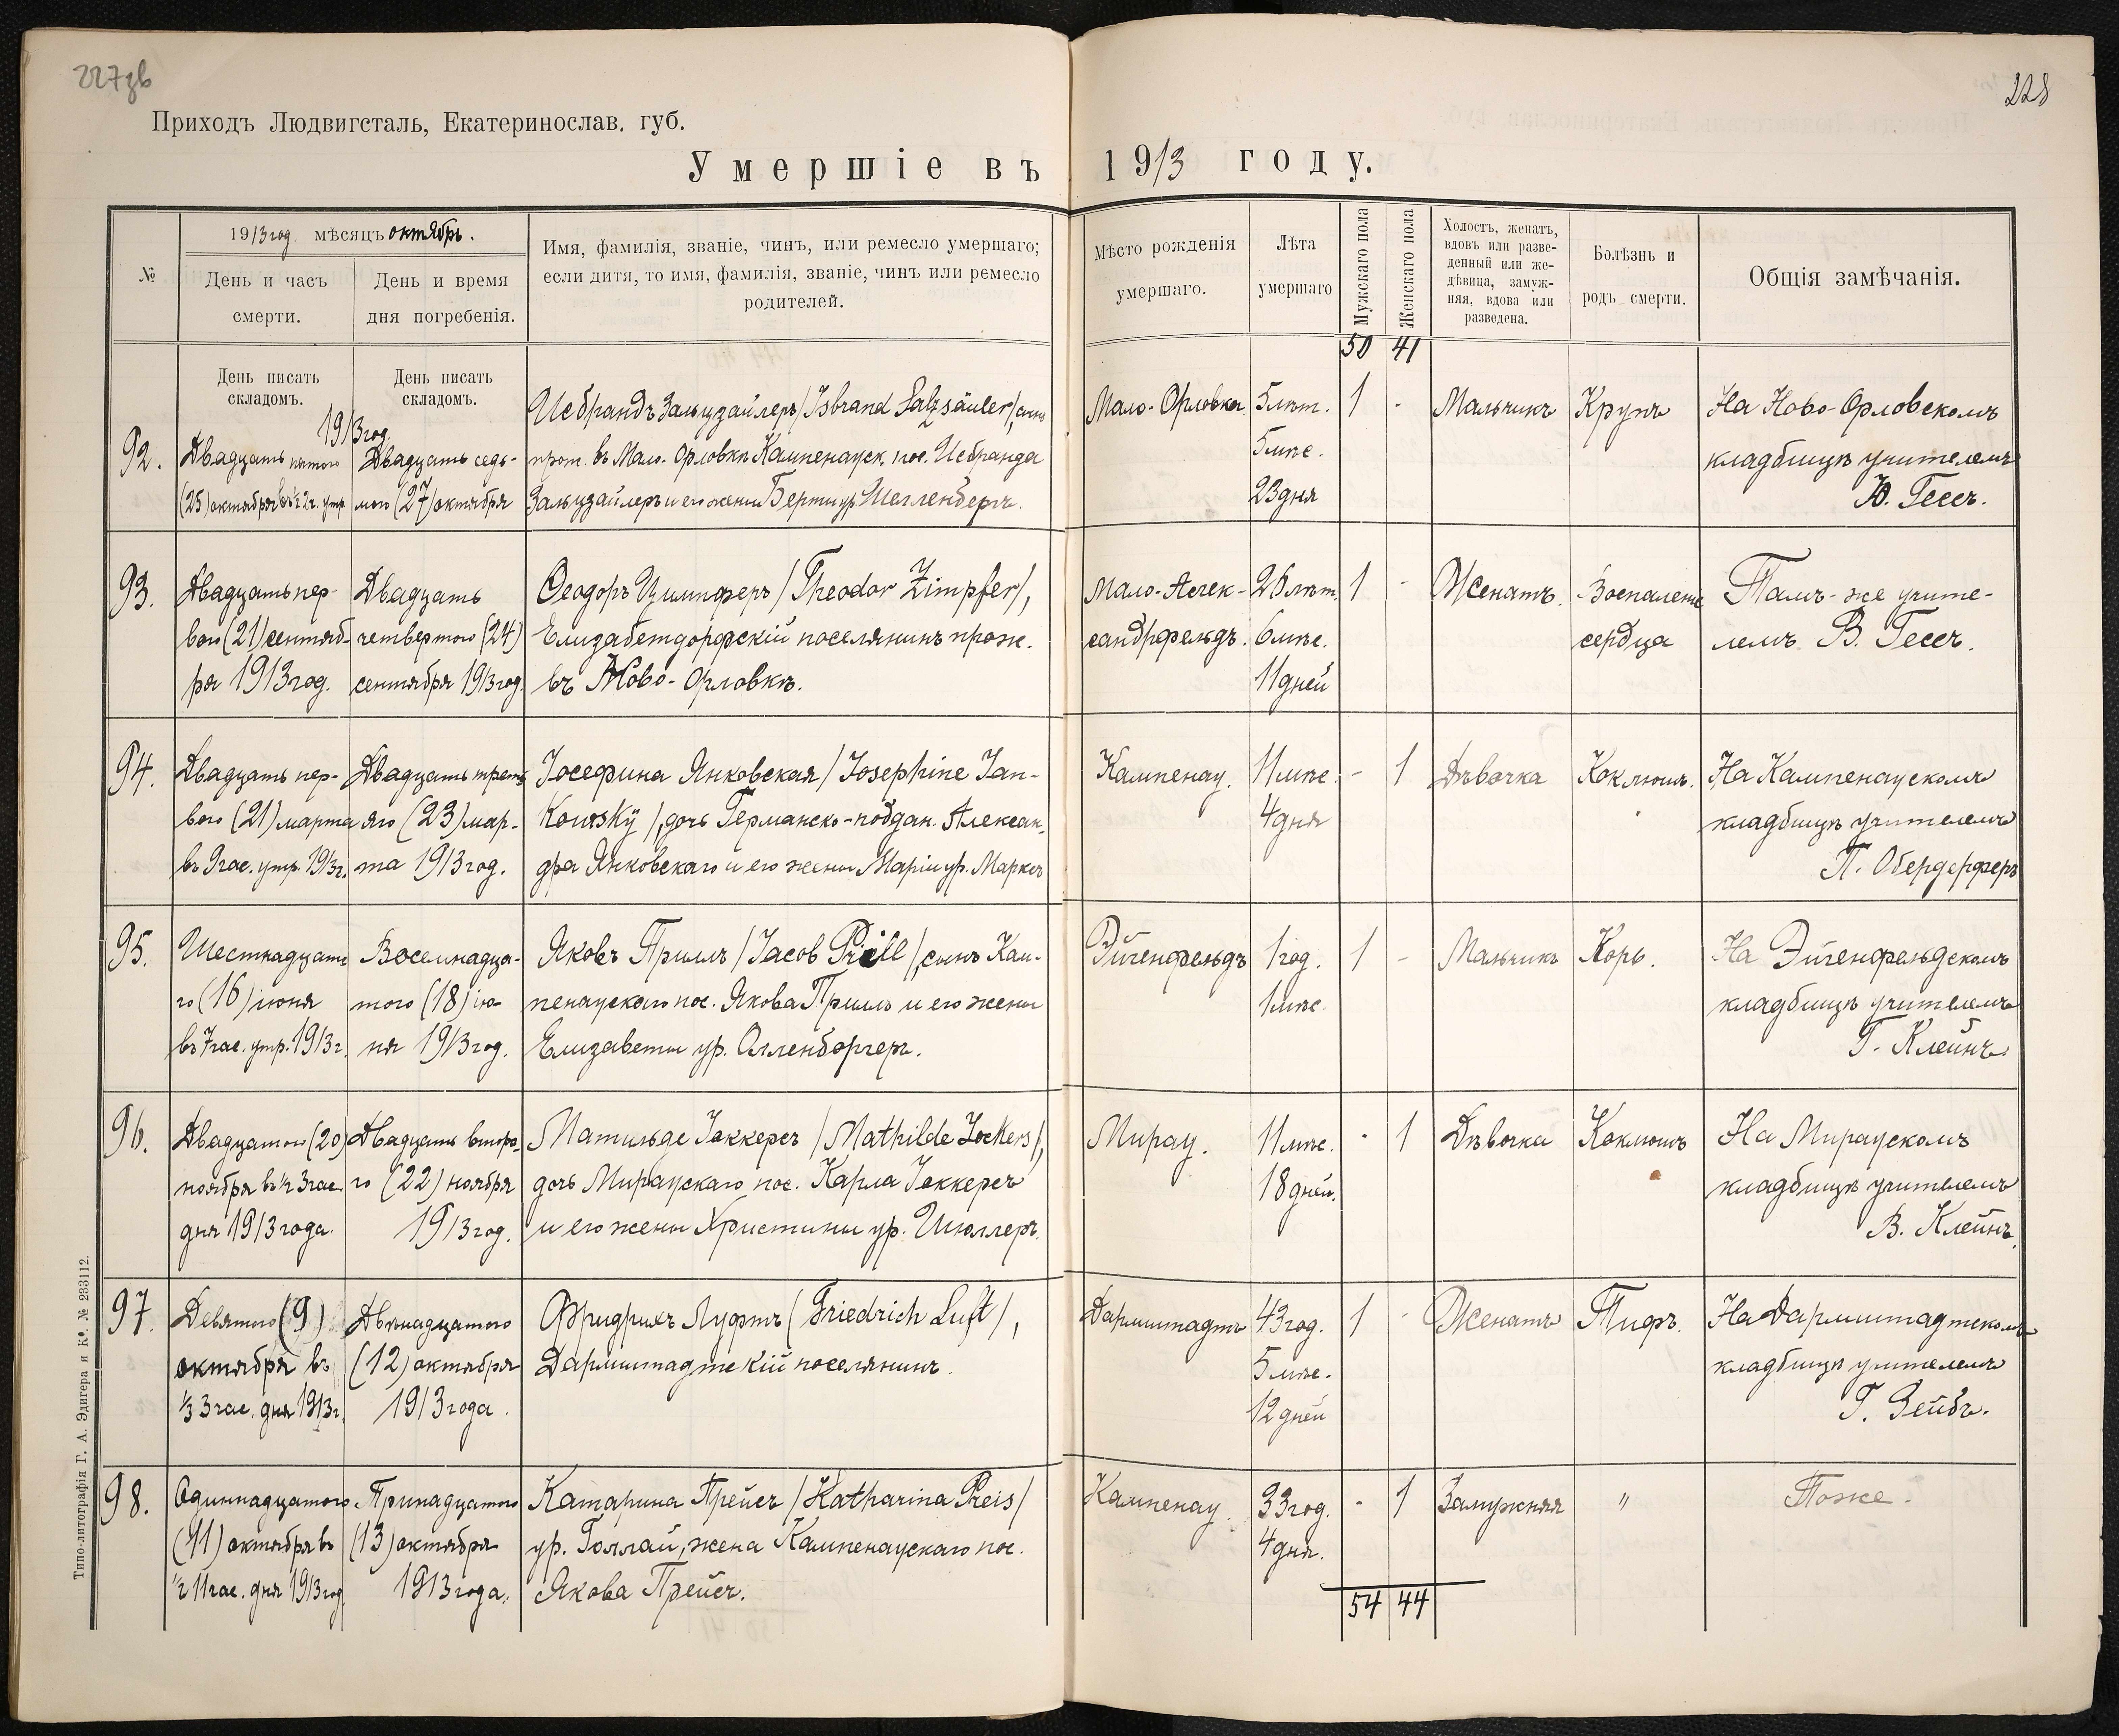 227зв
228
Приходъ Людвигсталь, Екатеринослав. губ.
Умершіе въ 1913 году.
№
1913 год. мѣсяцъ октябрь.
День и часъ
смерти.
День и время
дня погребенія.
Имя, фамилія, званіе, чинъ, или ремесло умершаго;
если дитя, то имя, фамилія, званіе, чинъ или ремесло
родителей.
Мѣсто рожденія
умершаго.
Лѣта
умершаго
Мужскаго пола
Женскаго пола
Холостъ, женатъ,
вдовъ или разве-
денный или же-
дѣвица, замуж-
няя, вдова или
разведена.
Болѣзнь и
родъ смерти.
Общія замѣчанія.
50 41
День писать
складомъ.
День писать
складомъ.
1913 год.
92.
Двадцать пятого
(25) октября въ ½ 2 ч. утр.
Двадцать седь-
мого (27) октября
Исбрандъ Зальцзайлеръ / Isbrand Salzsäuler /, сынъ
прож. въ Мало-Орловкѣ Кампенауск. пос. Исбранда
Зальцзайлеръ и его жены Берты ур. Шелленбергъ.
Мало-Орловка
5 лѣт.
5 мѣс.
23 дня
1
-
Мальчикъ
Крупъ
На Ново-Орловскомъ
кладбищѣ учителемъ
Ю. Гессъ.
93.
Двадцать пер-
вого (21) сентяб-
ря 1913 год.
Двадцать
четвертого (24)
сентября 1913 год.
Ѳеодоръ Цимпферъ / Theodor Zimpfer /,
Елизабетдорфскій поселянинъ прож.
въ Ново-Орловкѣ.
Мало-Алек-
сандрфельдъ.
26 лѣт.
6 мѣс.
11 дней
1
-
Женатъ.
Воспаленіе
сердца
Тамъ-же учите-
лемъ В. Гессъ.
94.
Двадцать пер-
вого (21) марта
въ 9 час. утр. 1913 г.
Двадцать треть-
яго (23) мар-
та 1913 год.
Іосефина Янковская / Josephine Jan-
kowsky /, дочь Германско-поддан. Алексан-
дра Янковскаго и его жены Маріи ур. Марксъ
Кампенау.
11 мѣс.
4 дня
-
1
Дѣвочка
Коклюшъ.
На Кампенаускомъ
кладбищѣ учителемъ
П. Обердерферъ
95.
Шестнадцата-
го (16) іюня
въ 7 час. утр. 1913 г.
Восемнадца-
того (18) ію-
ня 1913 год.
Яковъ Прилль / Jacob Prill /, сынъ Кам-
пенаускаго пос. Якова Прилль и его жены
Елизаветы ур. Олленборгеръ.
Эйгенфельдъ
1 год.
1 мѣс.
1
-
Мальчикъ
Корь.
На Эйгенфельдскомъ
кладбищѣ учителемъ
Г. Клейнъ
96.
Двадцатого (20)
ноября въ ½ 3 час.
дня 1913 года.
Двадцать второ-
го (22) ноября
1913 год.
Матильде Іоккерсъ / Mathilde Jockers /,
дочь Мирaускаго пос. Карла Іоккерсъ
и его жены Христины ур. Шюллеръ.
Мирау.
11 мѣс.
18 дней.
-
1
Дѣвочка
Коклюшъ
На Мираускомъ
кладбищѣ учителемъ
В. Клейнъ.
97.
Девятого (9)
октября въ
½ 3 час. дня 1913 г.
Двѣнадцатого
(12) октября
1913 года.
Фридрихъ Луфтъ / Friedrich Luft /,
Дармштадтскій поселянинъ.
Дармштадтъ
43 год.
5 мѣс.
12 дней
1
-
Женатъ
Тифъ.
На Дармштадтскомъ
кладбищѣ учителемъ
Г. Зейбъ.
98.
Одиннадцатого
(11) октября въ
½ 11 час. дня 1913 год.
Тринадцатого
(13) октября
1913 года.
Катарина Прейсъ / Katharina Preis /
ур. Голлай, жена Кампенаускаго пос.
Якова Прейсъ.
Кампенау.
33 год.
4 дня.
-
1
Замужняя
"
Тоже.
54 44
Типо-литографія Г. А. Эдигера и Кº. № 233112.